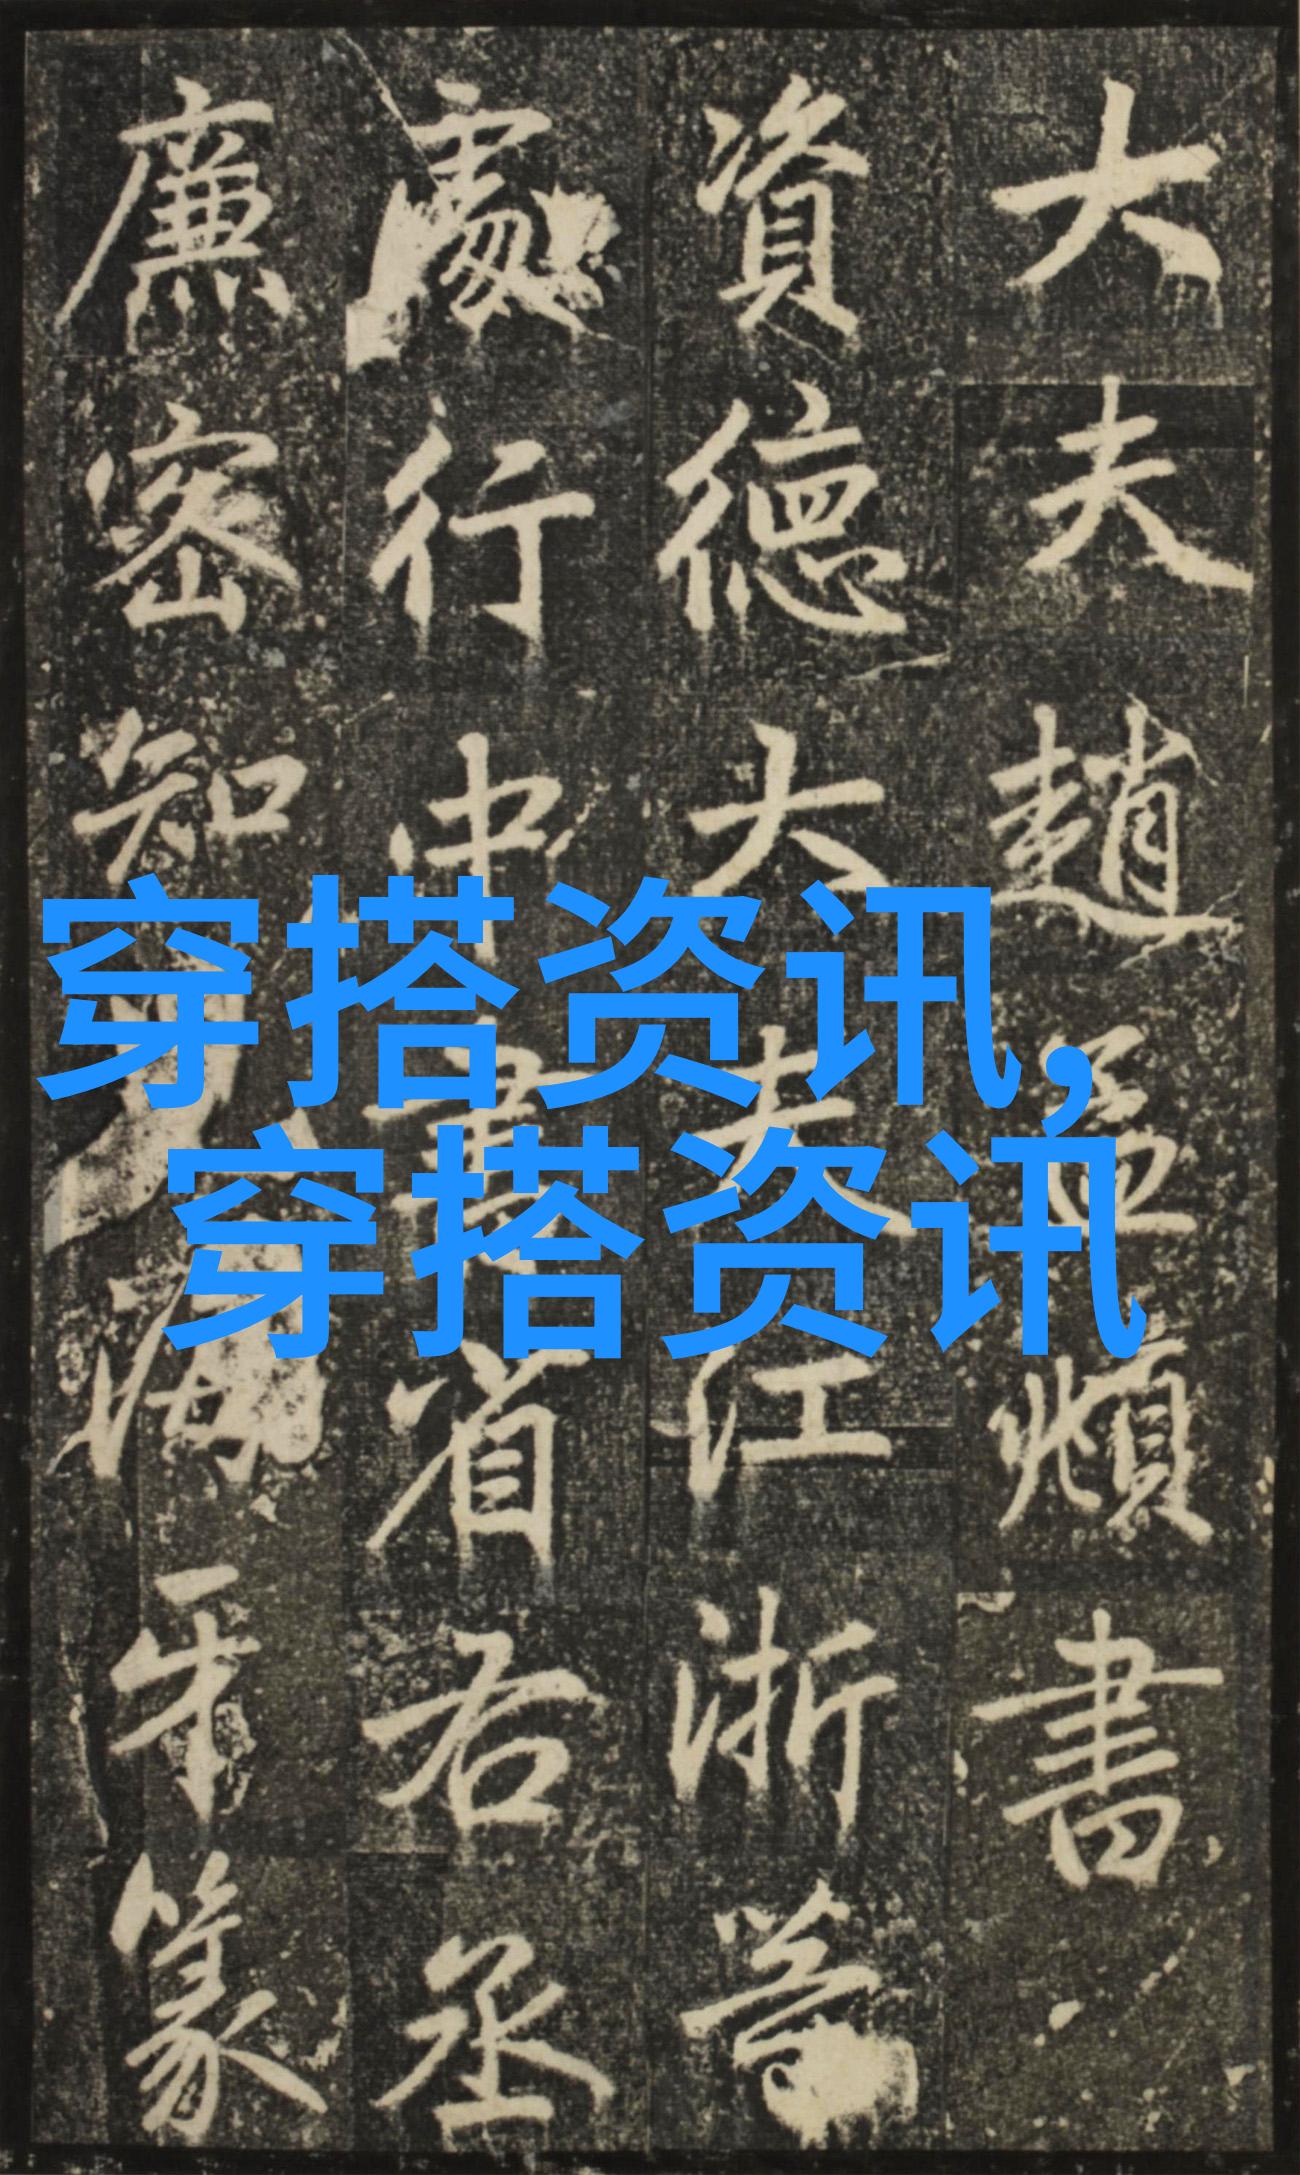 大夫趙孟頫書
資德大夫江浙等
處行中書省右丞
廉密知海牙篆
穿搭资讯,
穿搭资讯